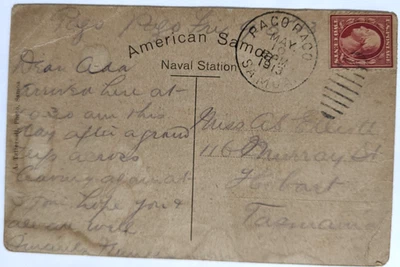 Pago Pago
American Samoa
Naval Station
PAGO PAGO
MAY
PM
1913
SAMOA
Dear Ada
Arrived here at
am this
day after a grand
trip across
Leaving again at
hope you
well
Miss A E Elliott
116 Murray St
Hobart
Tasmania